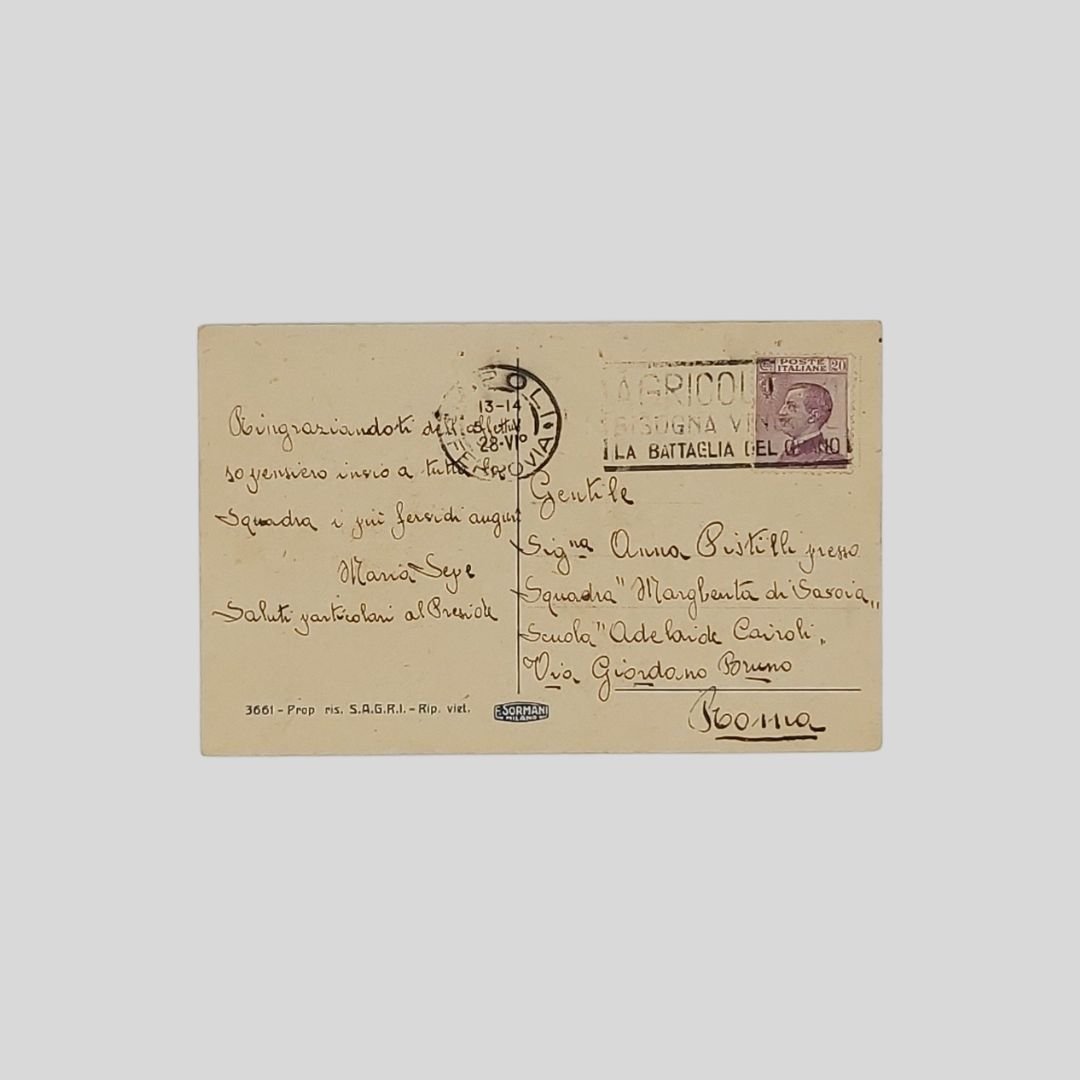 Ringraziandoti dell'affettuo
so pensiero invio a tutta la
Squadra i più fervidi auguri
Maria Sepe
Saluti particolari al Preside
3661 – Prop ris. S.A.G.R.I. – Rip. viet.
E. SORMANI
MILANO
13-14
28-VI°
AGRICOL
BISOGNA VIN
LA BATTAGLIA DEL GRANO
POSTE
ITALIANE
20
Gentile
Sig.na Anna Pistilli presso
Squadra "Margherita di Savoia"
Scuola "Adelaide Cairoli"
Via Giordano Bruno
Roma